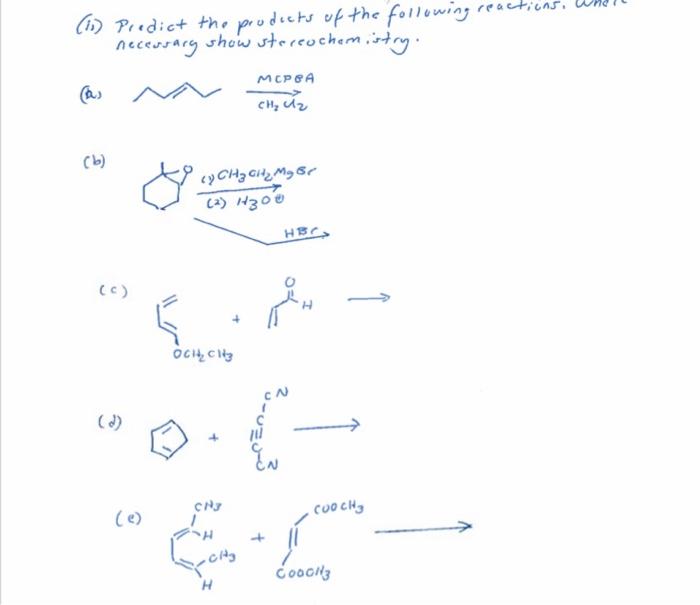 (ii) Predict the products of the following reactions. Where
necessary show stereochemistry.
(a)
MCPBA
CH2Cl2
(b)
O
(1) CH3CH2MgBr
(2) H3O⊕
HBr
(c)
O
H
+
OCH2CH3
(d)
CN
C
+
C
CN
(e)
CH3
COOCH3
H
+
CH3
COOCH3
H